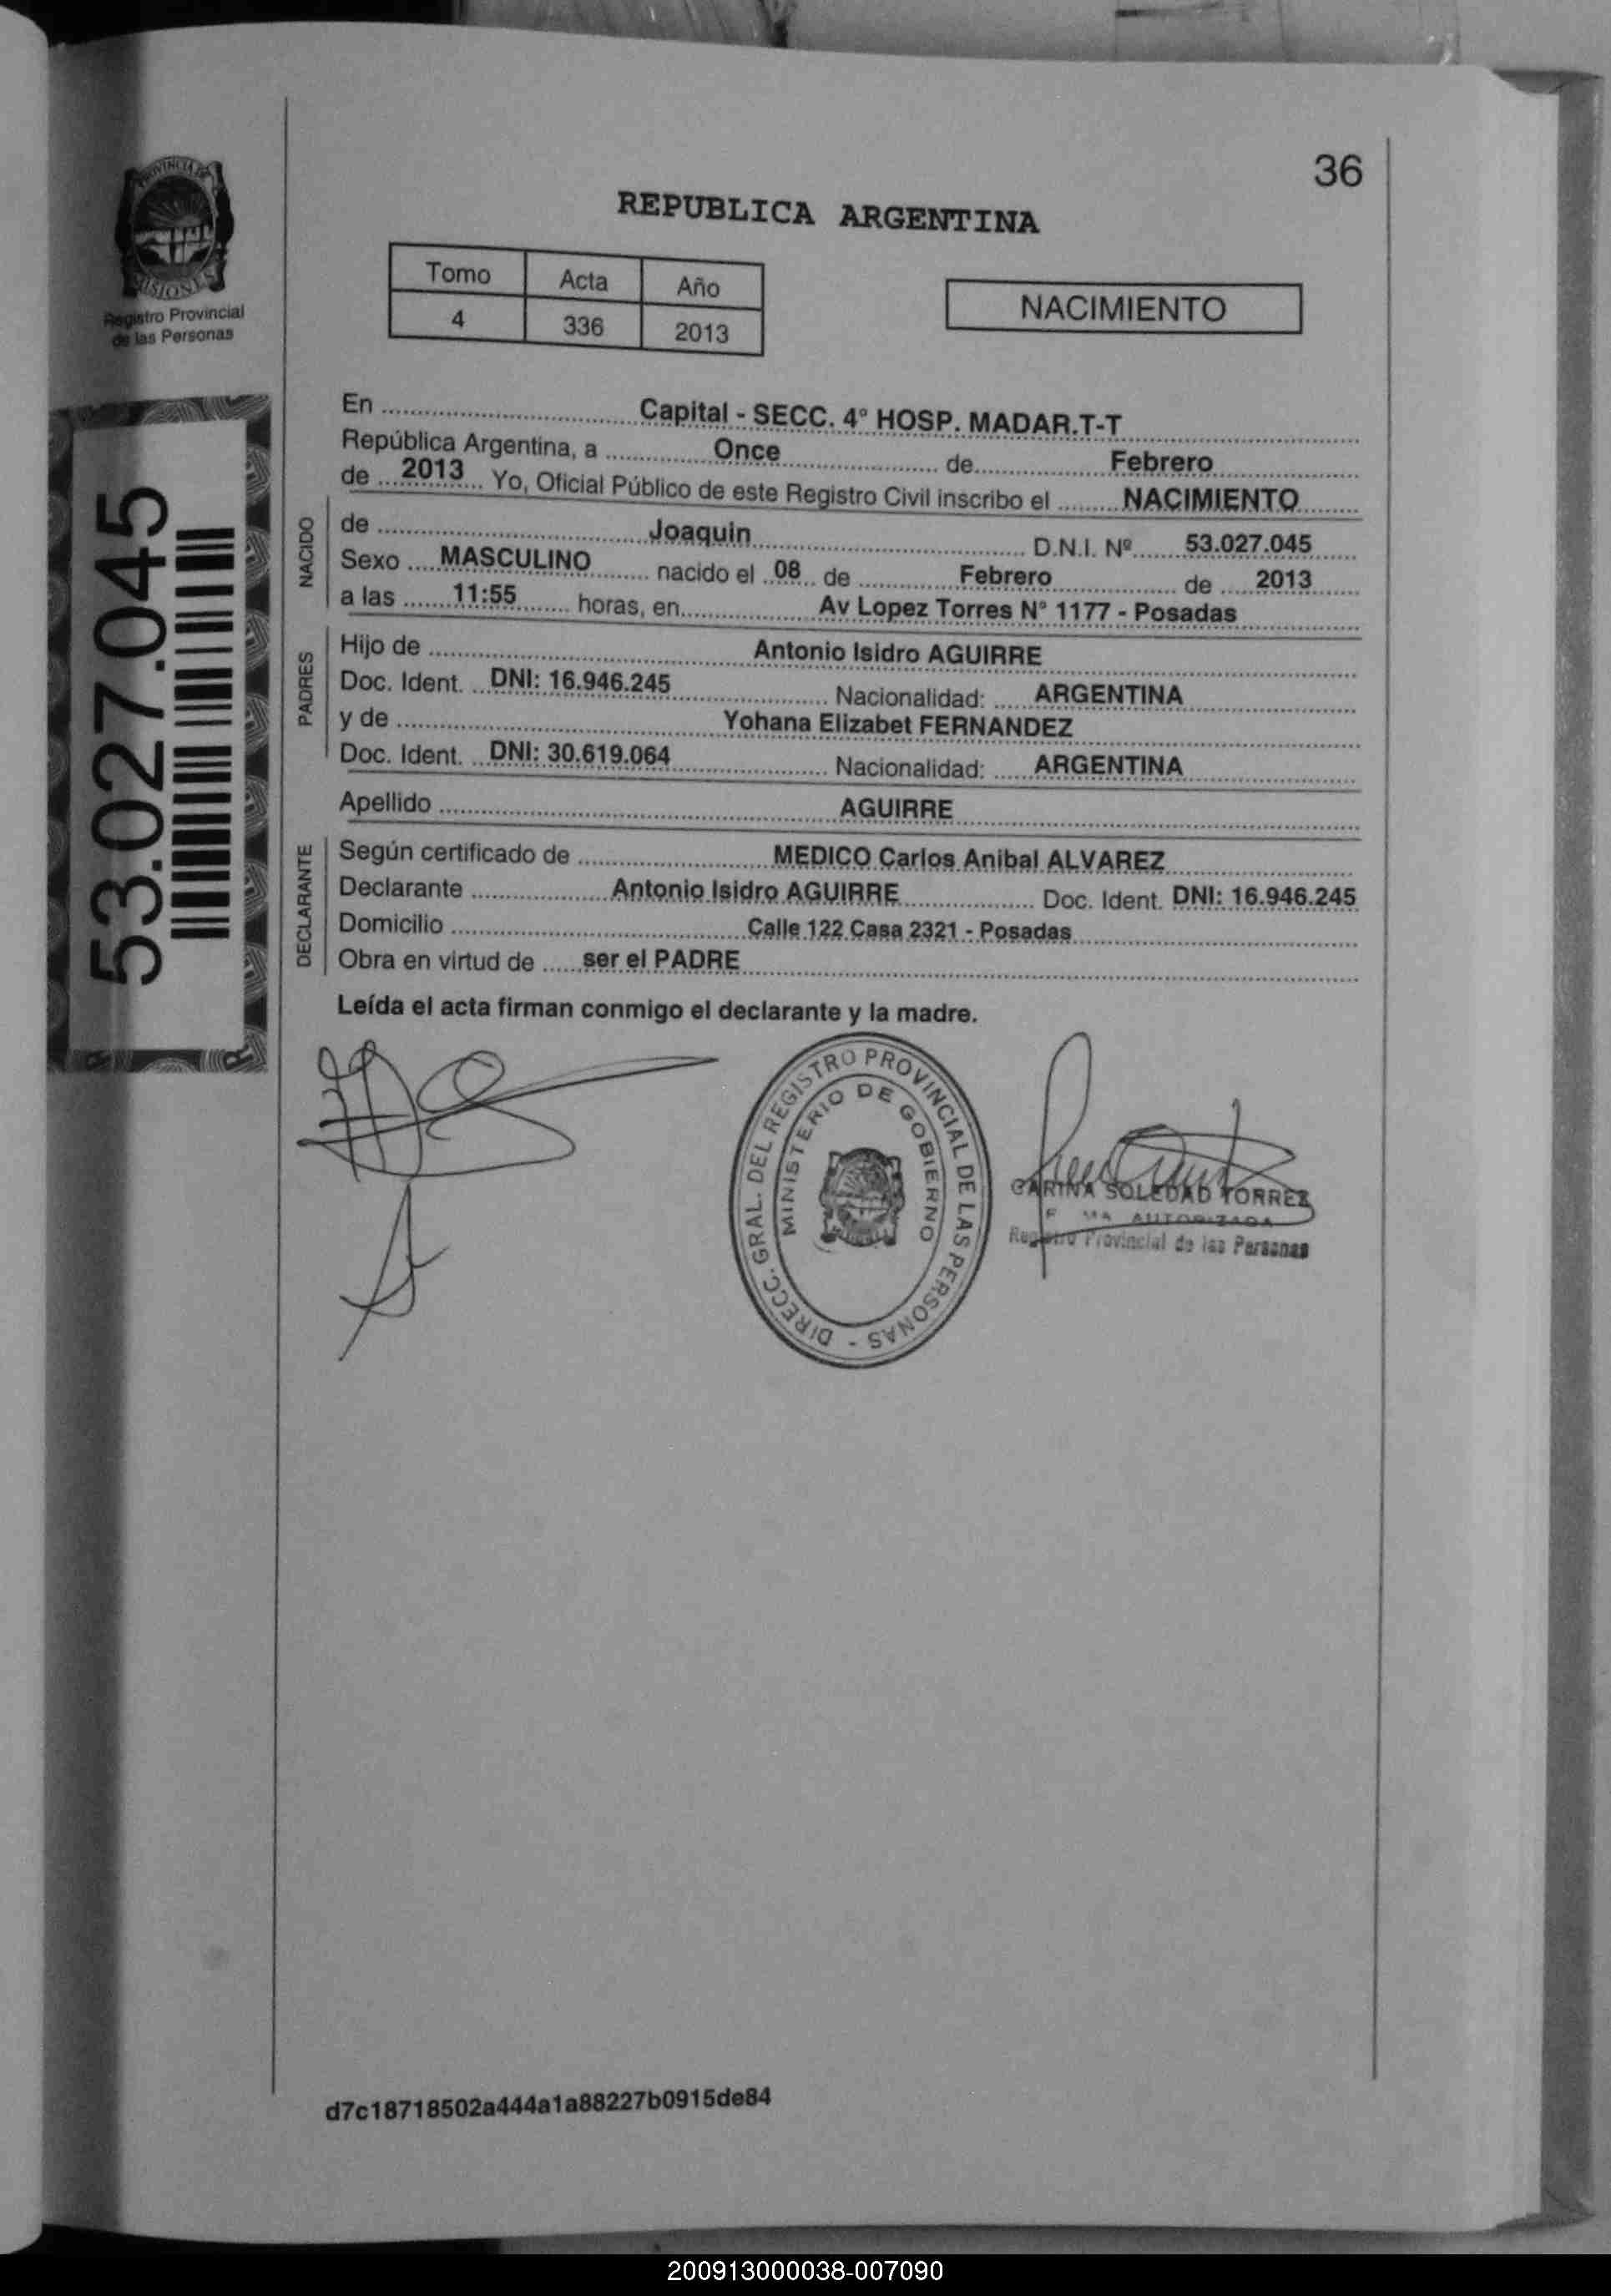 36
PROVINCIA DE
MISIONES
Registro Provincial
de las Personas
REPUBLICA ARGENTINA
Tomo Acta Año
4 336 2013
NACIMIENTO
53.027.045
En Capital - SECC. 4° HOSP. MADAR.T-T
República Argentina, a Once de Febrero
de 2013 Yo, Oficial Público de este Registro Civil inscribo el NACIMIENTO
NACIDO
de Joaquin D.N.I. Nº 53.027.045
Sexo MASCULINO nacido el 08 de Febrero de 2013
a las 11:55 horas, en Av Lopez Torres N° 1177 - Posadas
PADRES
Hijo de Antonio Isidro AGUIRRE
Doc. Ident. DNI: 16.946.245 Nacionalidad: ARGENTINA
y de Yohana Elizabet FERNANDEZ
Doc. Ident. DNI: 30.619.064 Nacionalidad: ARGENTINA
Apellido AGUIRRE
DECLARANTE
Según certificado de MEDICO Carlos Anibal ALVAREZ
Declarante Antonio Isidro AGUIRRE Doc. Ident. DNI: 16.946.245
Domicilio Calle 122 Casa 2321 - Posadas
Obra en virtud de ser el PADRE
Leída el acta firman conmigo el declarante y la madre.
DIRECC. GRAL. DEL REGISTRO PROVINCIAL DE LAS PERSONAS -
MINISTERIO DE GOBIERNO
CARINA SOLEDAD TORREZ
AUTORIZADA
Registro Provincial de las Personas
d7c18718502a444a1a88227b0915de84
200913000038-007090